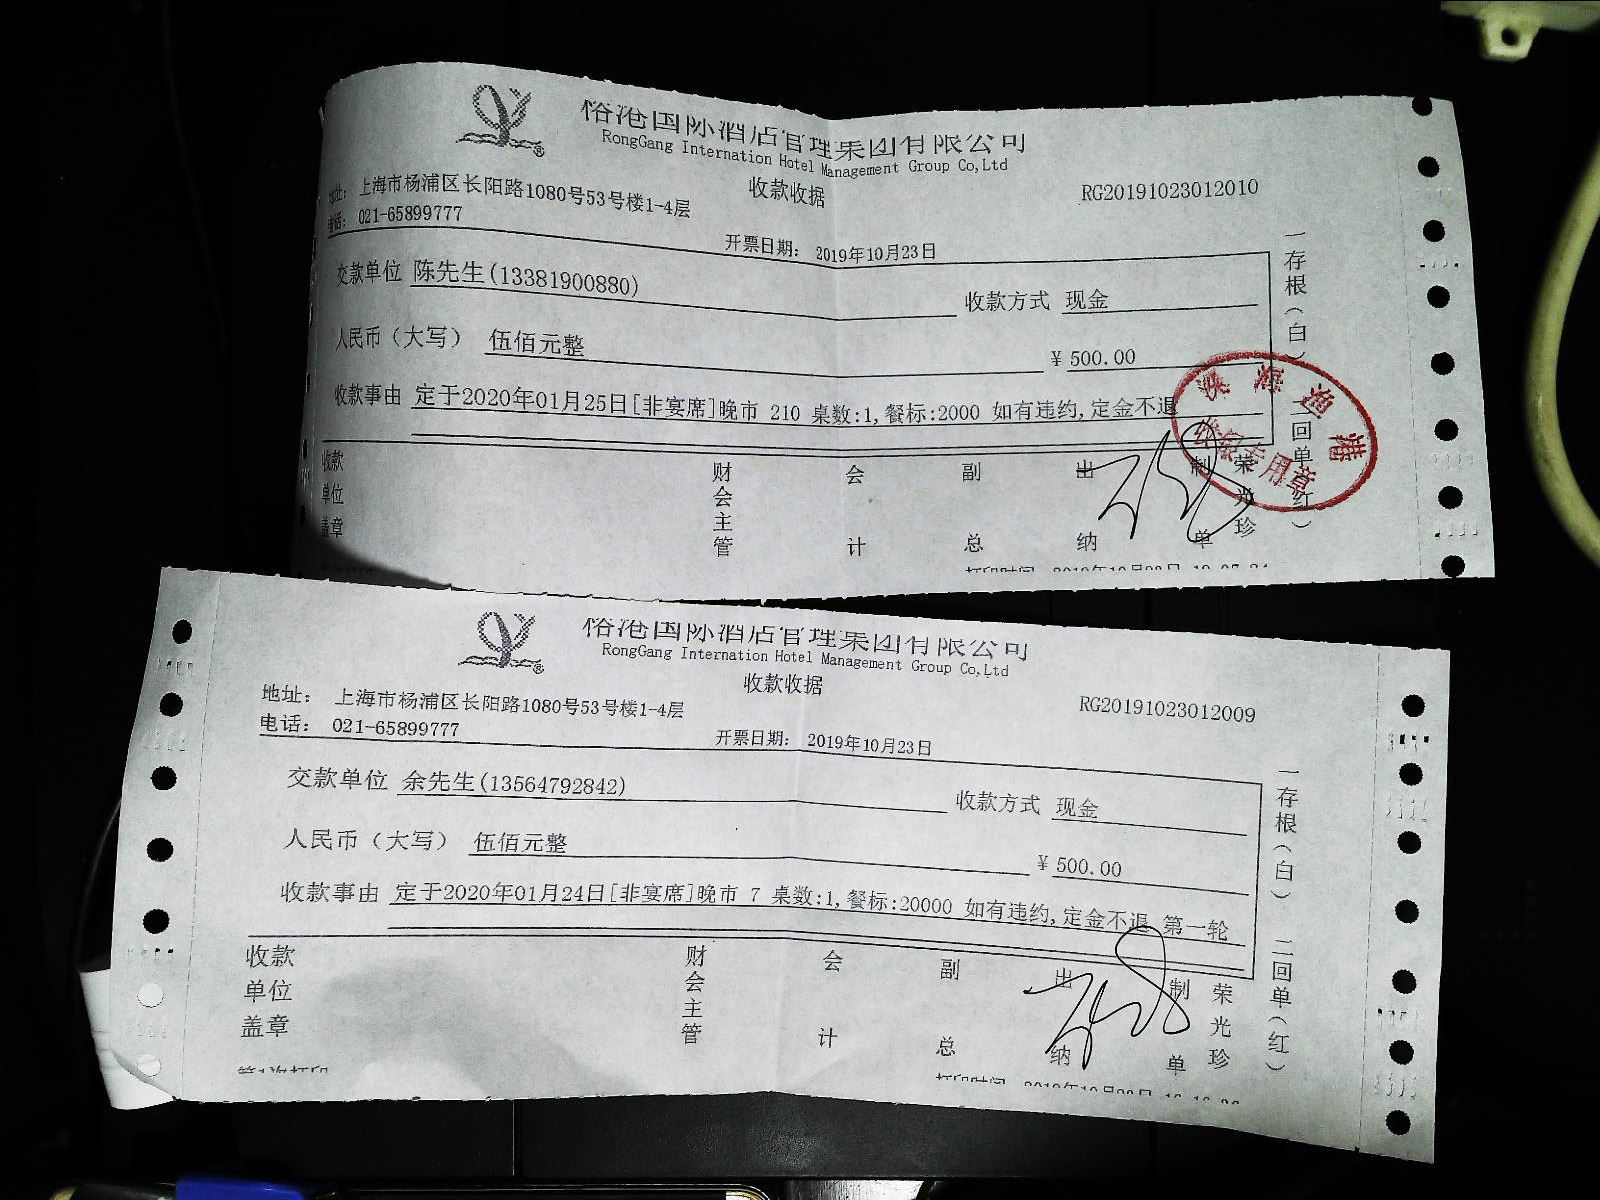 国际酒店管理集团有限公司
RongGang Internation Hotel Management Group Co,Ltd
收款收据
RG20191023012010
地址: 上海市杨浦区长阳路1080号53号楼1-4层
电话: 021-65899777
开票日期: 2019年10月23日
交款单位 陈先生(13381900880)
收款方式 现金
人民币(大写) 伍佰元整
¥500.00
收款事由 定于2020年01月25日[非宴席]晚市 210 桌数:1,餐标:2000 如有违约,定金不退
收款单位盖章
财会主管
会计
副总
出纳
制单
荣光珍
一存根(白)
回单(红)
专用章
国际酒店管理集团有限公司
RongGang Internation Hotel Management Group Co,Ltd
收款收据
RG20191023012009
地址: 上海市杨浦区长阳路1080号53号楼1-4层
电话: 021-65899777
开票日期: 2019年10月23日
交款单位 余先生(13564792842)
收款方式 现金
人民币(大写) 伍佰元整
¥500.00
收款事由 定于2020年01月24日[非宴席]晚市 7 桌数:1,餐标:20000 如有违约,定金不退 第一轮
收款单位盖章
财会主管
会计
副总
出纳
制单
荣光珍
一存根(白)
二回单(红)